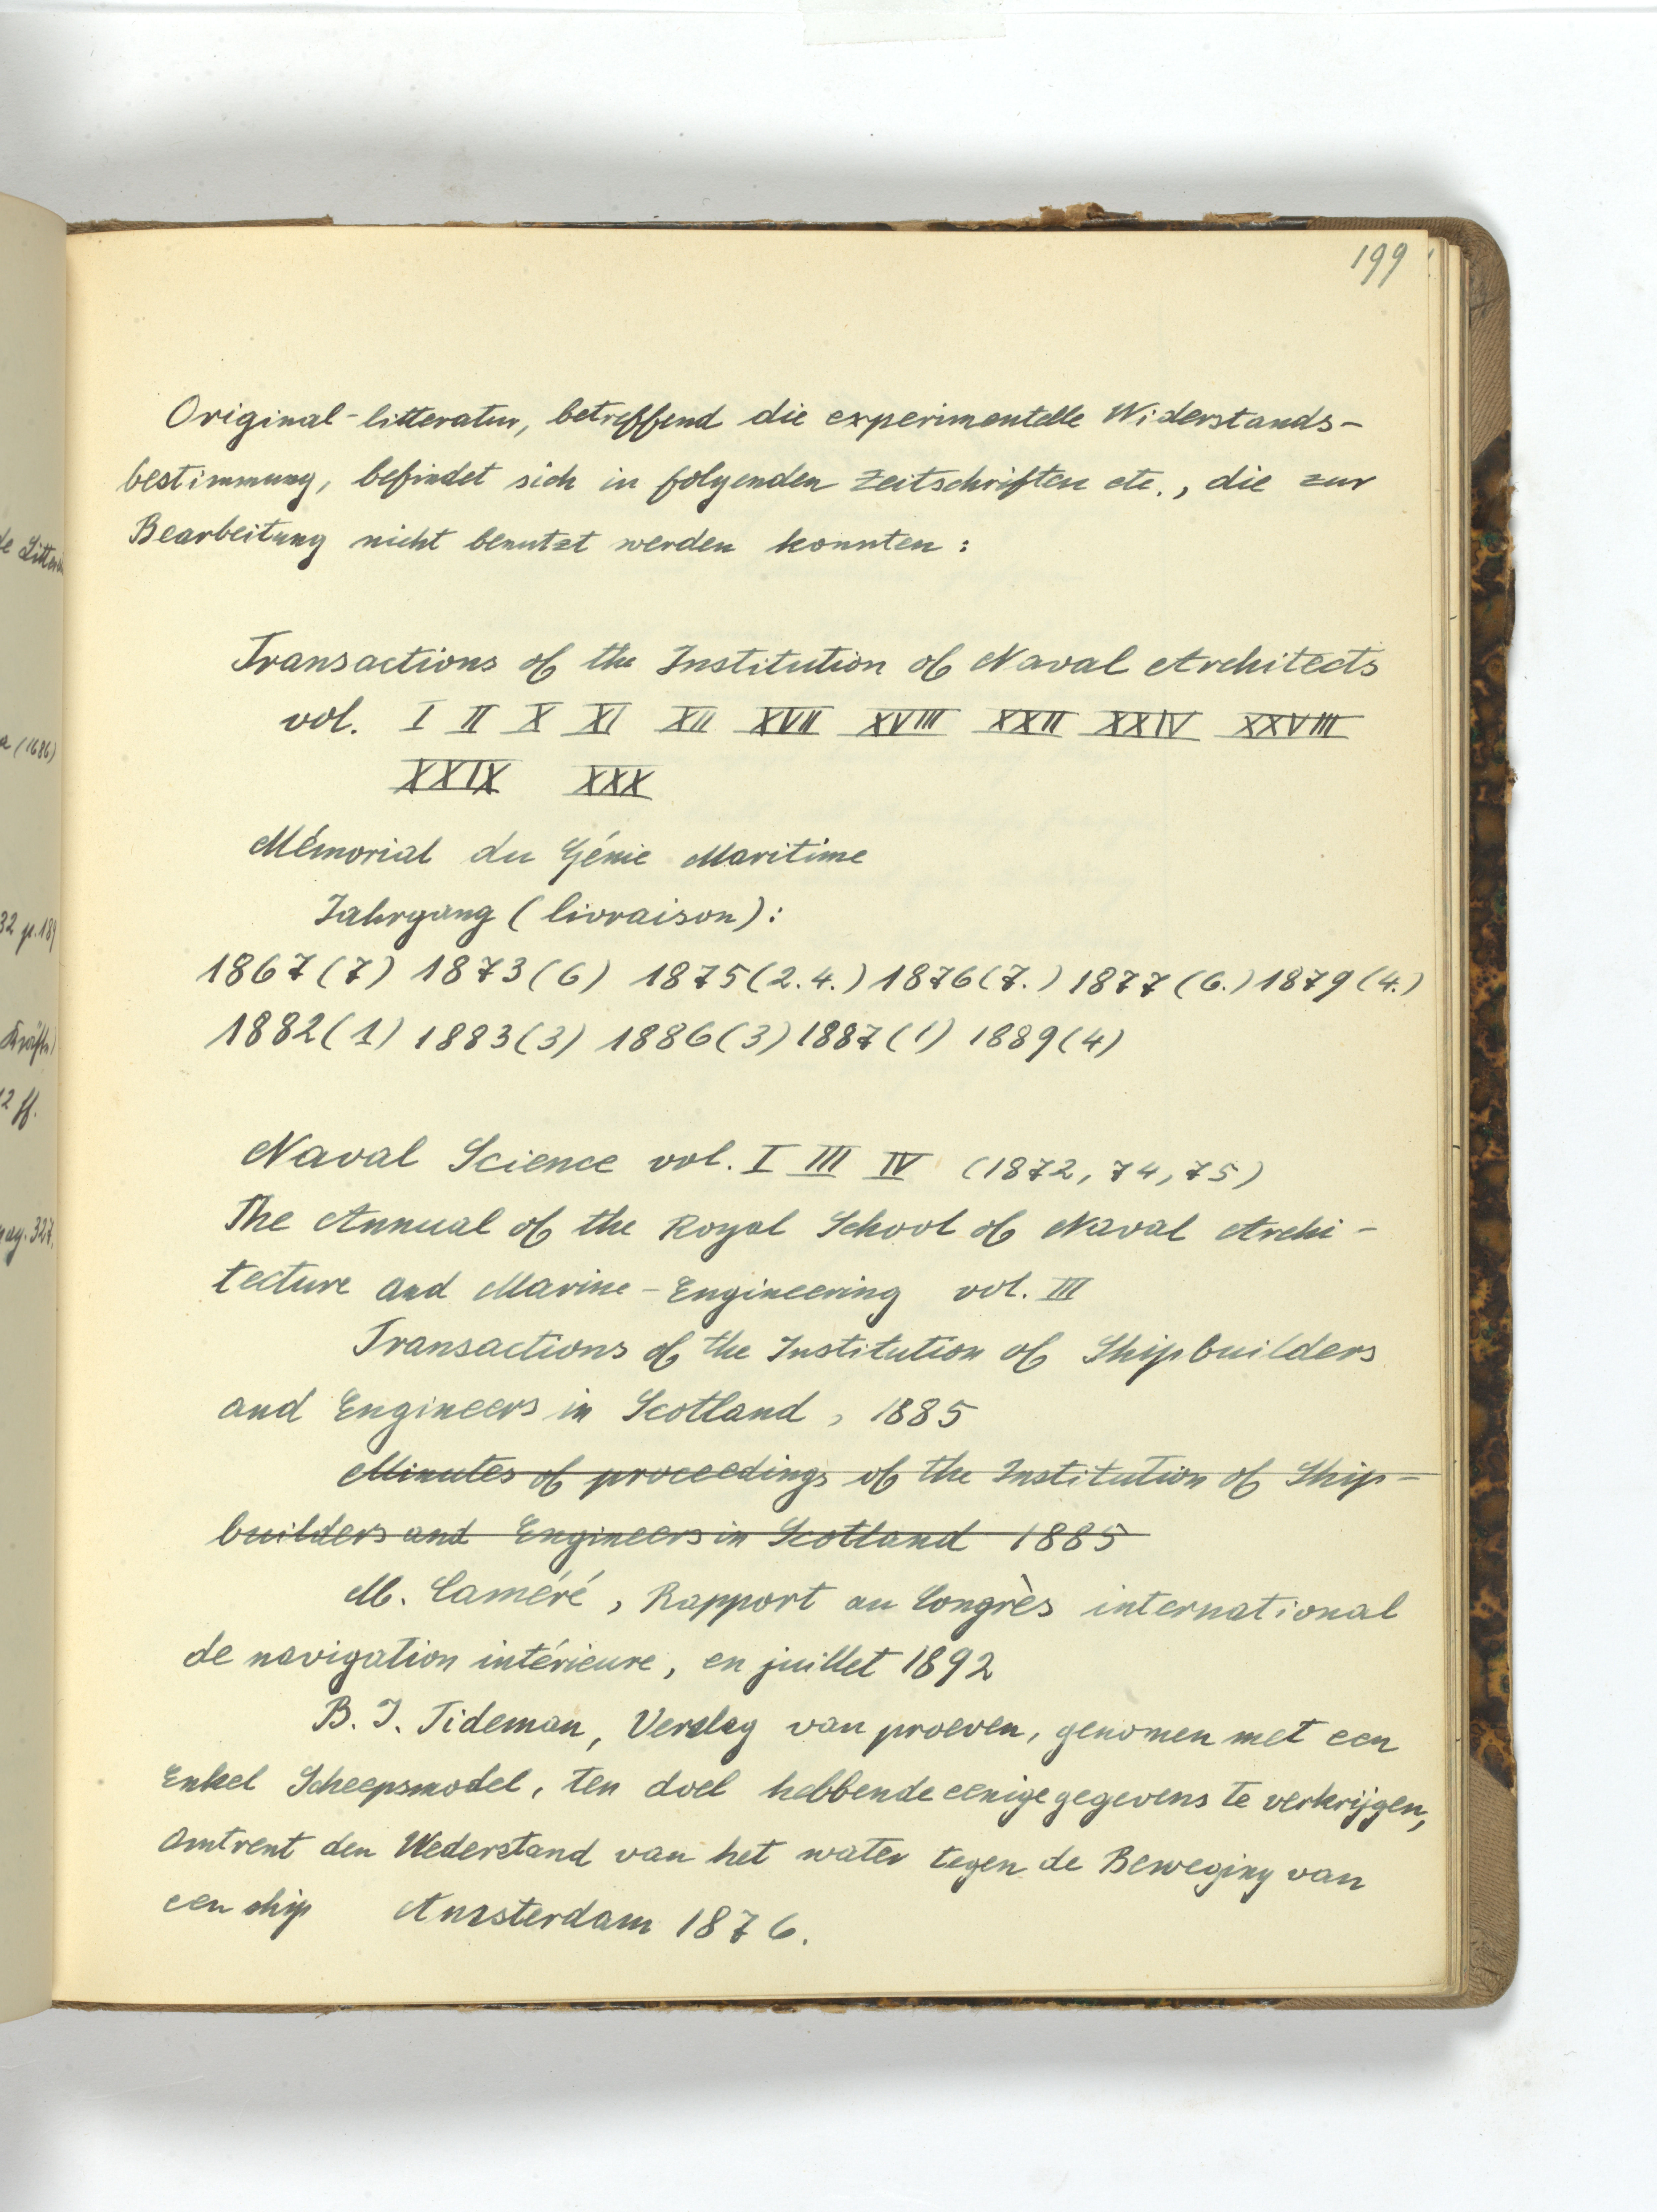 199
Original-litteratur, betreffend die experimentelle Widerstands-
bestimmung, befindet sich in folgenden Zeitschriften etc., die zur
Bearbeitung nicht benutzt werden konnten:
Transactions of the Institution of Naval Architects
vol. I II X XI XII XVII XVIII XXII XXIV XXVIII
XXIX XXX
Mémorial du Génie Maritime
Jahrgang (livraison):
1867(7) 1873(6) 1875(2.4.) 1876(7.) 1877(6.) 1879(4.)
1882(1) 1883(3) 1886(3) 1887(1) 1889(4)
Naval Science vol. I III IV (1872, 74, 75)
The Annual of the Royal School of Naval Archi-
tecture and Marine-Engineering vol. III
Transactions of the Institution of Shipbuilders
and Engineers in Scotland, 1885
Minutes of proceedings of the Institution of Ship-
builders and Engineers in Scotland 1885
M. Caméré, Rapport au Congrès international
de navigation intérieure, en juillet 1892
B. J. Tideman, Verslag van proeven, genomen met een
Enkel Scheepsmodel, ten doel hebbende eenige gegevens te verkrijgen,
Omtrent den Wederstand van het water tegen de Beweging van
een ship Amsterdam 1876.
de
a (1686)
32 p. 189
12 ff.
pag. 327.